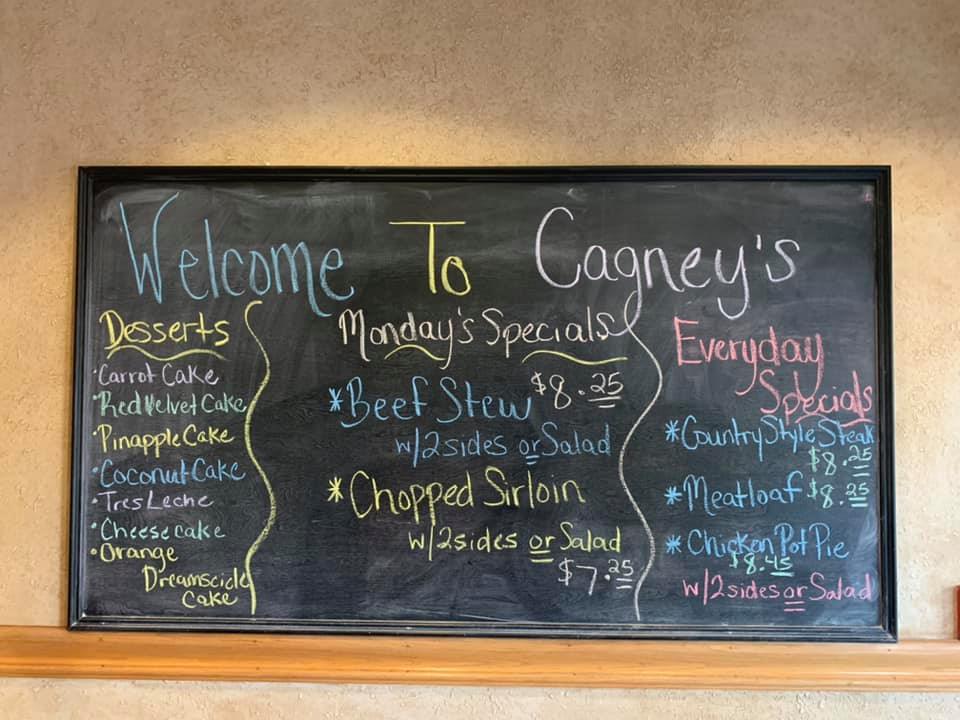 Welcome To Cagney's
Desserts
·Carrot Cake
·Red Velvet Cake
·Pinapple Cake
·Coconut Cake
·Tres Leche
·Cheesecake
·Orange
Dreamscicle
Cake
Monday's Specials
*Beef Stew $8.25
w/2 sides or Salad
*Chopped Sirloin
w/2 sides or Salad
$7.25
Everyday
Specials
*Country Style Steak
$8.25
*Meatloaf $8.25
*Chicken Pot Pie
$8.45
w/2 sides or Salad